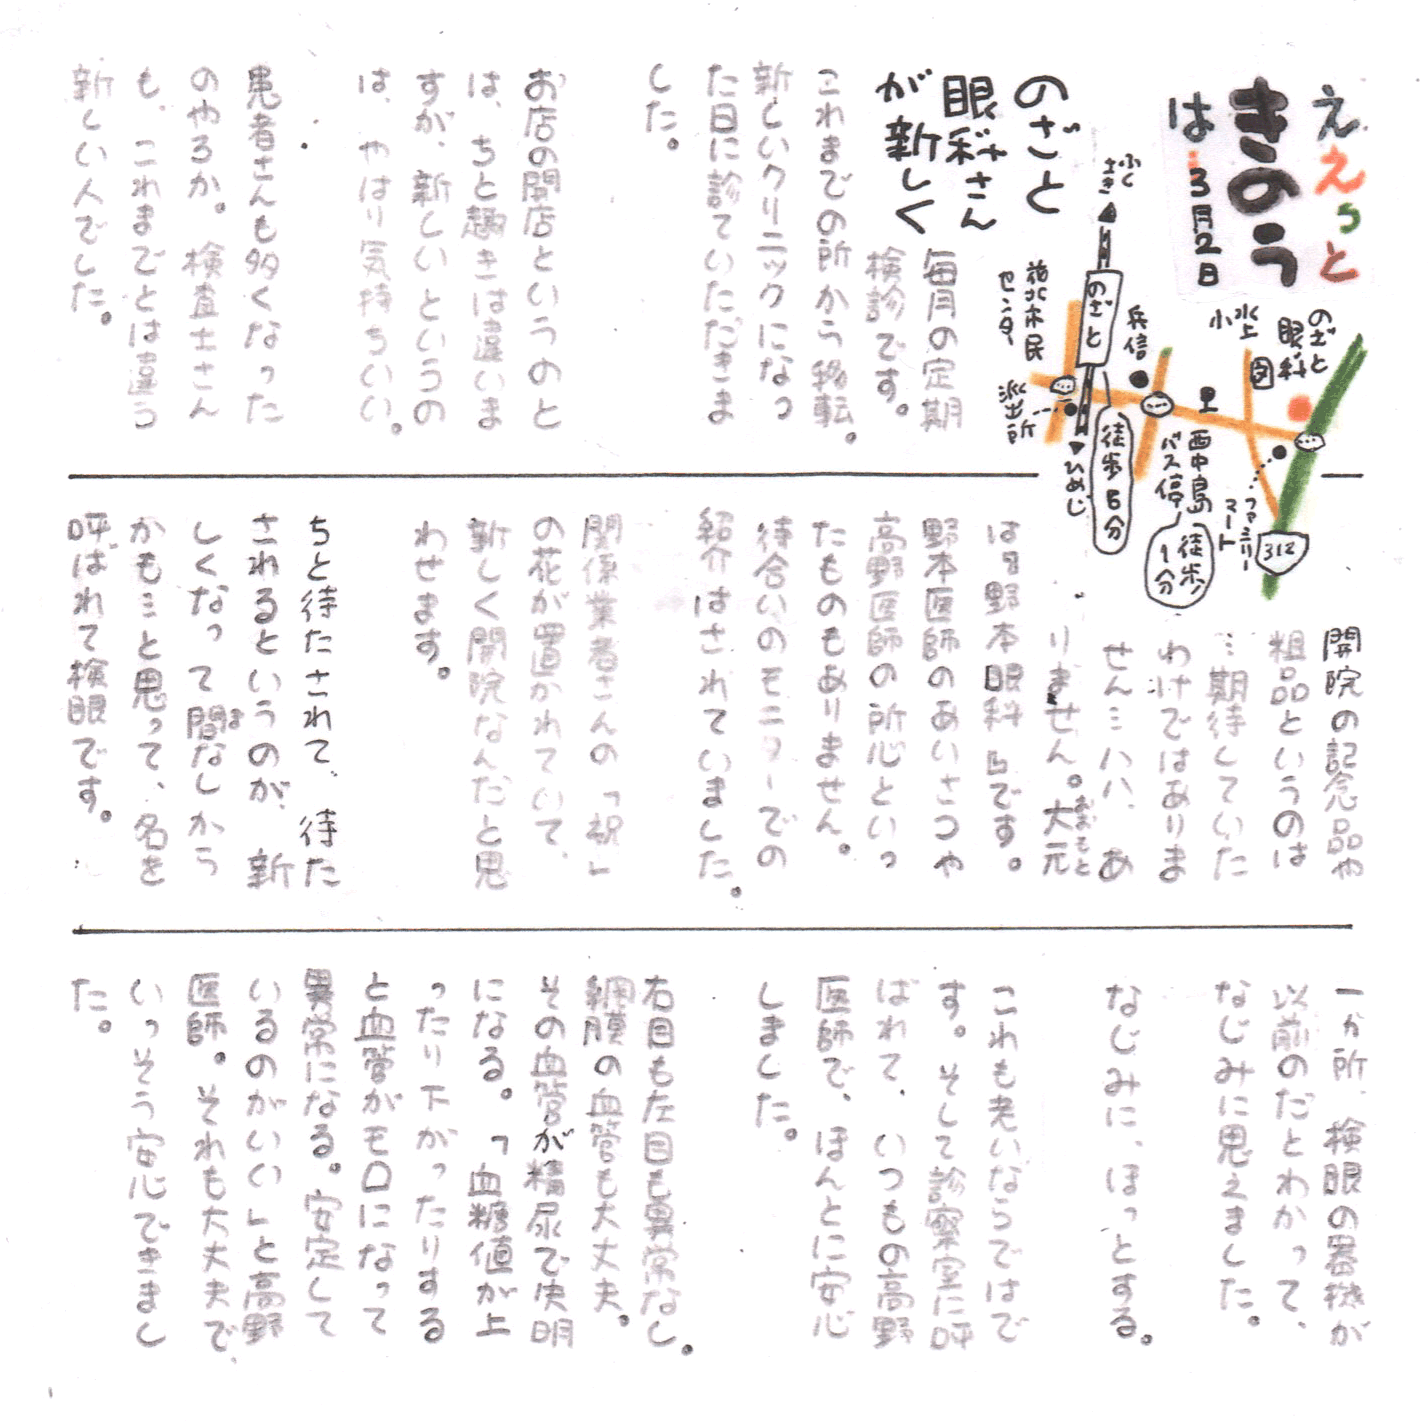 ええっと
きのう
は
3月2日
のざと
眼科さん
が新しく
ふくさき
のざと
花北市民
センター
兵信
水上
小
のざと
眼科
派出所
徒歩5分
ひめじ
西中島
バス停
徒歩
1分
ファミリー
マート
312
毎月の定期
検診です。
これまでの所から移転。
新しいクリニックになっ
た日に診ていただきま
した。
お店の開店というのと
は、ちと趣きは違いま
すが、新しいというの
は、やはり気持ちいい。
患者さんも多くなった
のやろか。検査士さん
も、これまでとは違う
新しい人でした。
開院の記念品や
粗品というのは
…期待していた
わけではありま
せん…ハハ、あ
りません。大元
おおもと
は『野本眼科』です。
野本医師のあいさつや
高野医師の所心といっ
たものもありません。
待合いのモニターでの
紹介はされていました。
関係業者さんの「祝」
の花が置かれていて、
新しく開院なんだと思
わせます。
ちと待たされて、待た
されるというのが、新
しくなって間なしから
ま
かも…と思って、名を
呼ばれて検眼です。
一か所、検眼の器械が
以前のだとわかって、
なじみに思えました。
なじみに、ほっとする。
これも老いならではで
す。そして診察室に呼
ばれて、いつもの高野
医師で、ほんとに安心
しました。
右目も左目も異常なし。
網膜の血管も大丈夫。
その血管が糖尿で決明
になる。「血糖値が上
ったり下がったりする
と血管がモロになって
異常になる。安定して
いるのがいい」と高野
医師。それも大丈夫で、
いっそう安心できまし
た。